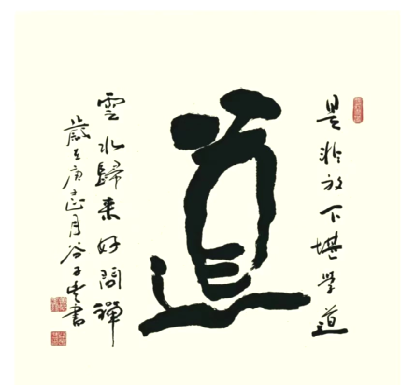 是非放下堪學道
道
雲水歸来好問禪
歲在庚子正月谷子
書